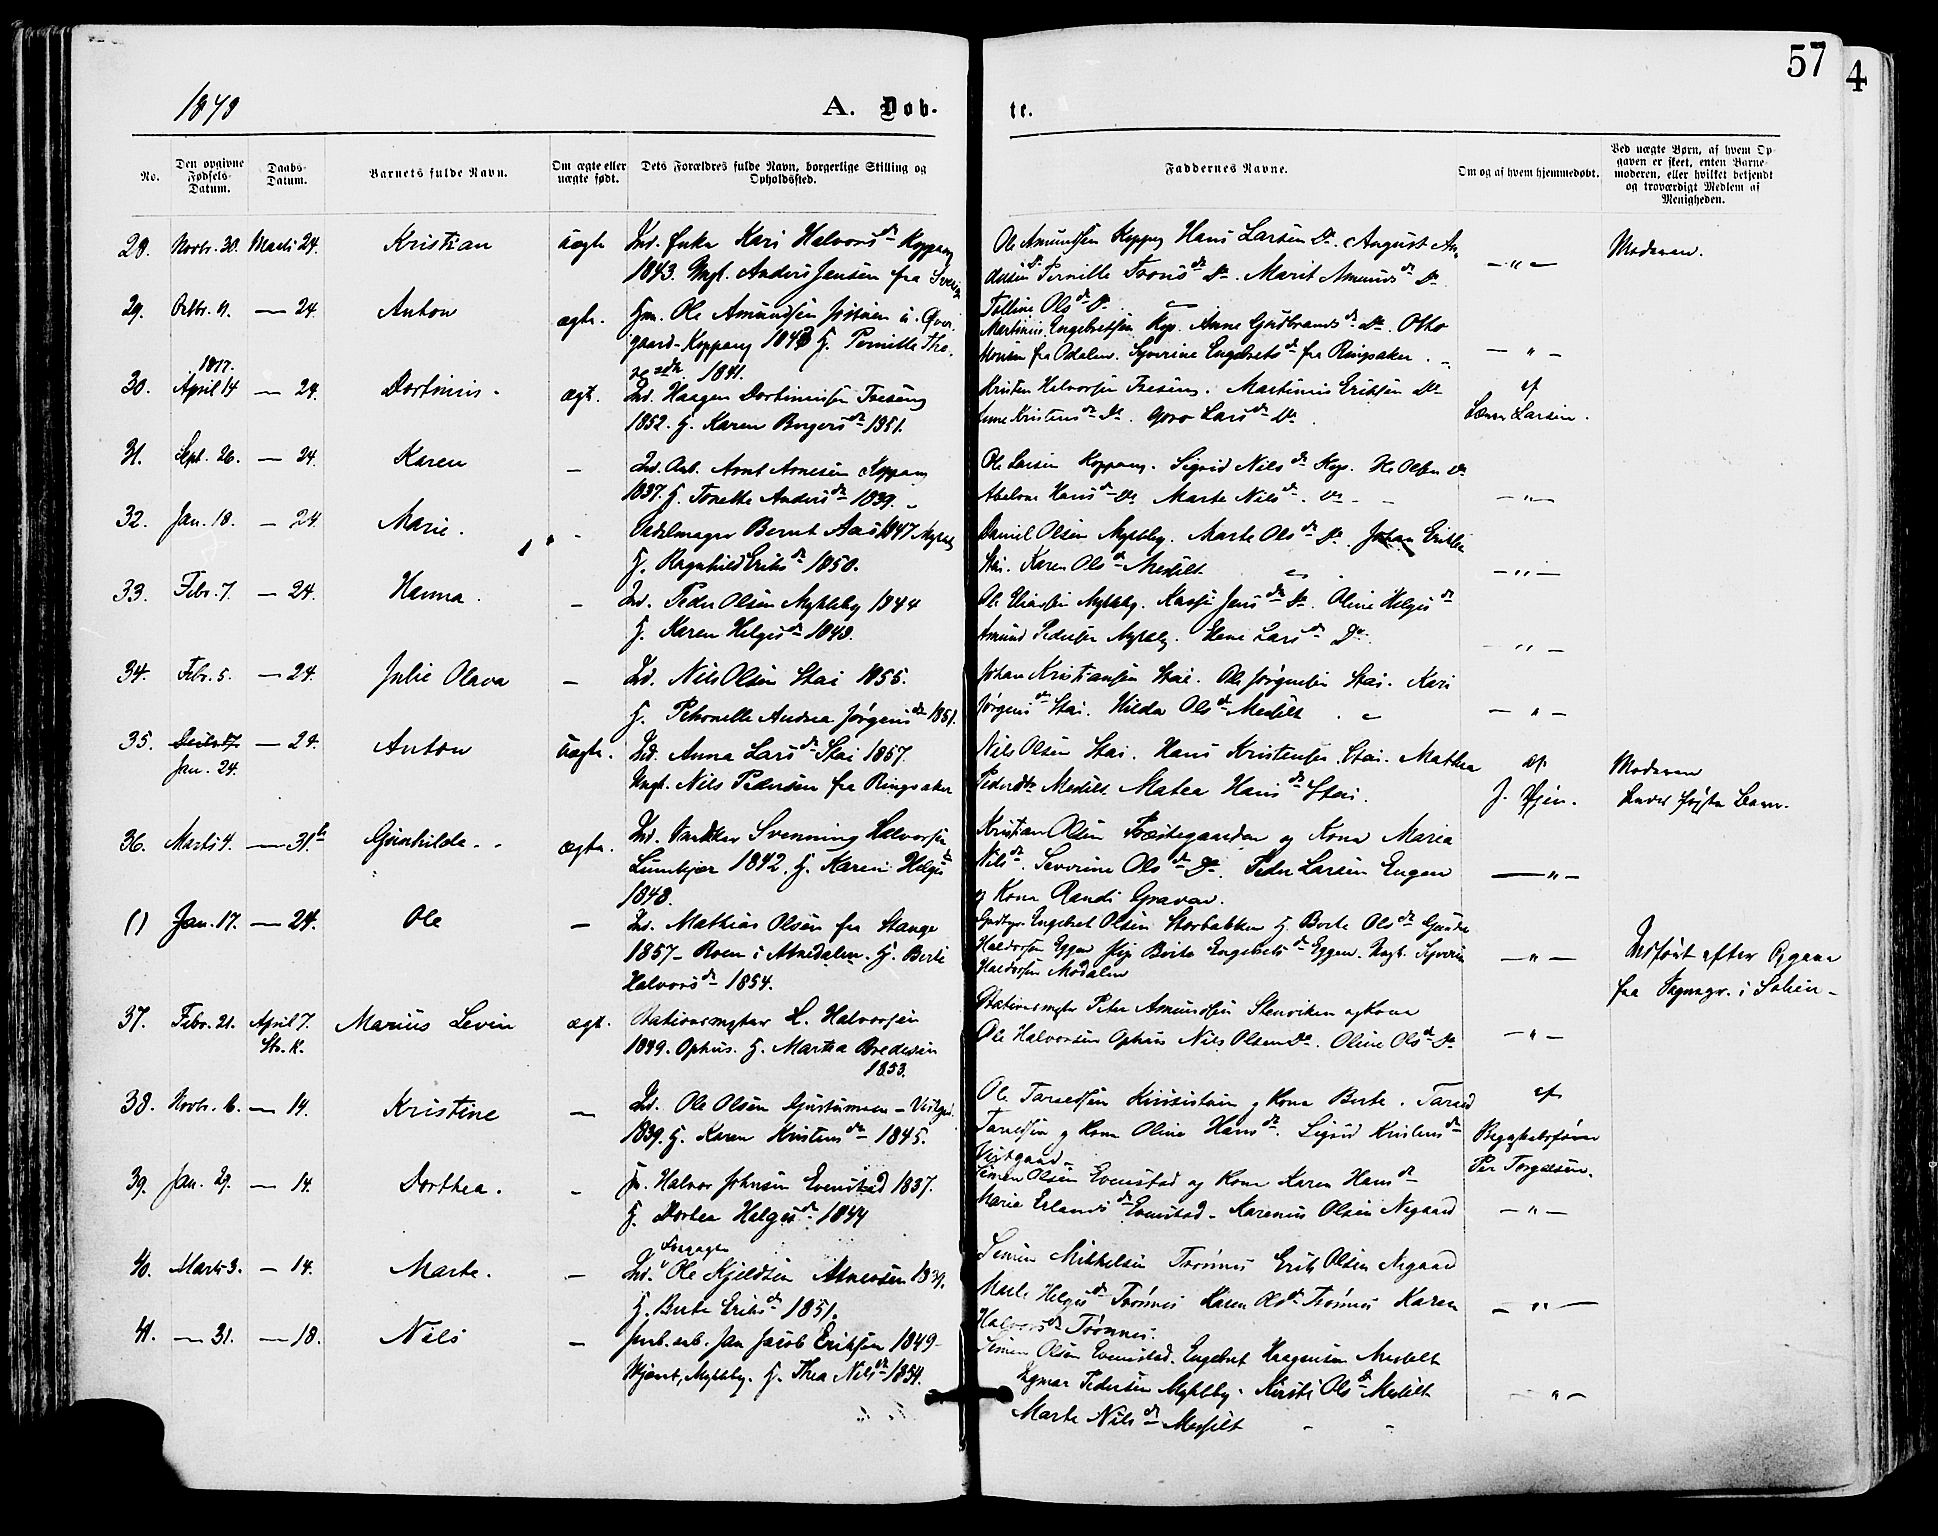 57
4
1878
A. Døb-
te.
No.
Den opgivne Fødsels-Datum.
Daabs-Datum.
Barnets fulde Navn.
Om ægte eller uægte født.
Dets Forældres fulde Navn, borgerlige Stilling og Opholdssted.
Faddernes Navne.
Om og af hvem hjemmedøbt.
Ved uægte Børn, af hvem Opgaven er skeet, enten Barnemoderen, eller hvilket betjendt og troværdigt Medlem af Menigheden.
28. Novbr. 30. Marts 24. Kristian uægte Ind. Enke Kari Halvorsdr Koppang
1843. Ungk. Anders Jensen fra Sverige
Ole Amundsen Koppang Hans Larsen Do. August An-
dersen Do Pernille Tronsdr Do. Marit Amundsdr Do
Olsdr Do
— " —
Moderen.
29. Octbr. 9. — 24. Anton ægte. Gm. Ole Amundsen
gaard - Koppang 1843 H. Pernille
1841.
Martinius Engebretsen Kop. Anne Gudbrandsdr Do. Otto
fra Odalen. Syverine Engebretsdr fra Ringsaker.
— " —
1877.
30. April 14 — 24. Dortinius. ægt. Ind. Haagen Dortiniusen Treseng
1852. H. Karen Birgersdr 1851.
Kristen Halvorsen Treseng. Martinius Eriksen Do
Kristensdr Do. Goro Larsdr Do.
af
Larsen.
31. Sept. 26. — 24. Karen — Ind. Arb. Arnt Arnesen Koppang
1837. H. Tonette Andersdr 1839.
Ole Larsen Koppang. Sigrid Nilsdr Kop. Olsen Do
Abelone Hansdr Do Marte Nilsdr. Do
— " —
32. Jan. 18. — 24. Marie. - Sadelmager Bernt Aas 1847 Mykleby
H. Ragnhild Eriksdr 1850.
Daniel Olsen Mykleby. Marte Olsdr Do. Johan Eriksen
Stai. Karen Olsdr Messelt
— " —
33. Febr. 7. — 24. Hanna. — Ind. Peder Olsen Mykleby 1844
H. Karen Helgesdr 1848.
Ole Mykleby. Jensdr Do. Oline Helgesdr
Amund Pedersen Mykleby. Larsdr Do.
— " —
34. Febr. 5. — 24. Julie Olava — Ind. Nils Olsen Stai 1855.
H. Petronelle Andrea Jørgensdr 1851.
Johan Kristiansen Stai. Ole Jørgensen Stai. Kari
Jørgensdr Stai. Hilda Olsdr Messelt
— " —
35. Jan. 24. — 24. Anton uægte. Ind. Anna Larsdr Stai 1857.
Ungk. Nils Pedersen fra Ringsaker
Nils Olsen Stai. Hans Kristensen Stai. Mathea
Pedersdtr Messelt Matea Hansdr Stai.
af
J.
Moderen
Barn.
36. Marts 4. — 31te Gunhilda. ægte. Ind. Svenning Halvorsen
1842. H. Karen Helgesdr
1848.
Kristian Olsen Præstegaarden og Kone Maria
Nilsdr. Severine Olsdr Do. Peder Larsen Engen
og Kone Randi Gravar.
— " —
() Jan. 17. — 24. Ole — Ind. Mathias Olsen fra Stange
1857 - Roen i Atnedalen. H. Berte
Halvorsdr 1854.
Engebret Olsen Storbakken H. Berte Olsdr
Haldorsen Eggen Pige Berte Engebretsdr Eggen. Ungk. Syverin
Haldorsen Modalen
— " —
Indført efter Opgave
fra Sognepr. i
37. Febr. 21. April 7. Marius Levin ægt. Stationsmester L. Halvorsen
Sto. K.
1849. Ophus. H. Martea Bredesen
1853.
Stationsmester Peter Amundsen Stenviken og Kone
Ole Halvorsen Ophus Nils Olsen Do. Oline Olsdr Do
— " —
38. Novbr. 6. — 14. Kristine — Ind. Ole Olsen
1839. H. Karen Kristensdr 1845.
Ole Taraldsen og Kone Berte. Tarald
og Kone Oline Hansdr. Sigrid Kristensdr
Vestgaard
af
Per Torgalsen.
39. Jan. 29. — 14. Dorthea. — Halvor Johnsen Evenstad 1837.
H. Dortea Helgesdr 1844
Simen Olsen Evenstad og Kone Karen Hansdr
Marie Erlandsdr Evenstad. Karenius Olsen Negaard
— " —
40. Marts 3. — 14. Marte. — Forpagter
Ind. Ole Kjeldsen Atneosen 1839.
H. Berte Eriksdr 1851.
Simen Mikkelsen Trønnes Erik Olsen Negaard
Marte Helgesdr Trønnes Karen Olsdr Trønnes Karen
Halvorsdr Trønnes.
— " —
41. — 31. — 18. Nils — Jernb. arb. Jan Jacob Eriksen 1849
Mykleby. H. Thea Nilsdr 1854.
Simen Olsen Evenstad. Engebret Haagensen Messelt
Pedersen Mykleby. Kirsti Olsdr Messelt
Marte Nilsdr Messelt
— " —